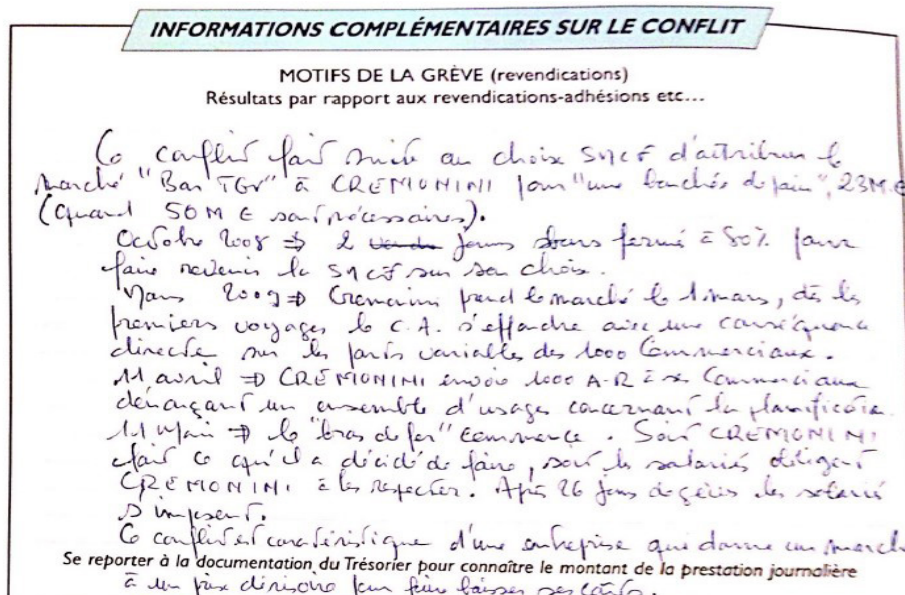 INFORMATIONS COMPLÉMENTAIRES SUR LE CONFLIT
MOTIFS DE LA GRÈVE (revendications)
Résultats par rapport aux revendications-adhésions etc...
Ce conflit fait suite au choix SNCF d'attribuer le
marché "Bar TGV" à CREMONINI pour "une bouchée de pain", 23M.€
(quand 50M € sont nécessaires).
Octobre 2008 ⇒ 2 jours bars fermé à 80% pour
faire revenir la SNCF sur son choix.
Mars 2009 ⇒ Cremonini prend le marché le 1 mars, dès les
premiers voyages le C.A. s'effondre avec une conséquence
directe sur les parts variables des 1000 Commerciaux.
11 avril ⇒ CREMONINI envoie 1000 A-R à ses Commerciaux
dénonçant un ensemble d'usages concernant la planification.
11 Mai ⇒ le "bras de fer" commence. Soit CREMONINI
fait ce qu'il a décidé de faire, soit les salariés obligent
CREMONINI à les respecter. Après 26 jours de grève les salarié
s'imposent.
Ce conflit est caractéristique d'une entreprise qui donne un march
Se reporter à la documentation du Trésorier pour connaître le montant de la prestation journalière
à un prix dérisoire pour faire baisser ses coûts.